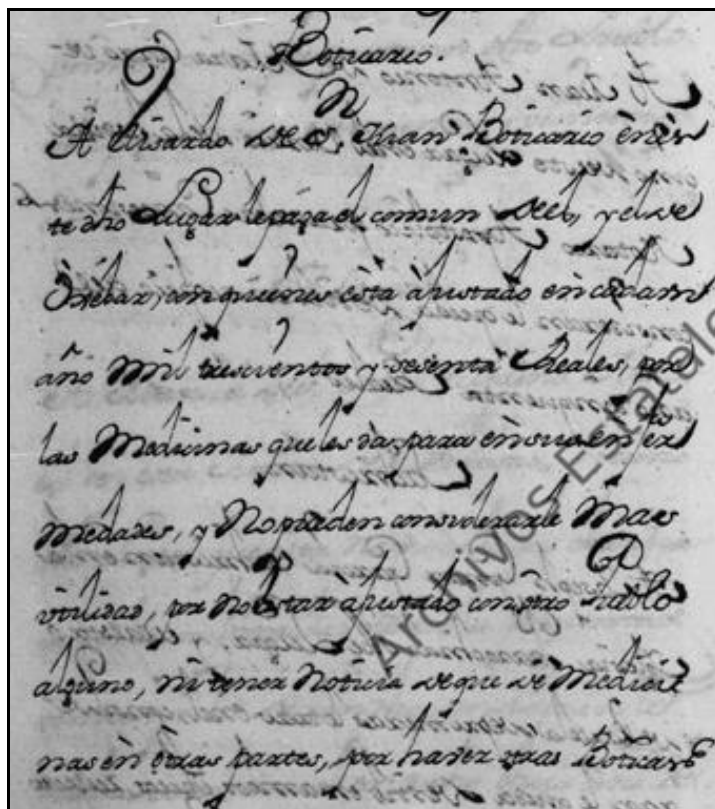 Boticario.
A Ricardo de Sn. Juan Boticario en és
te dho Lugar le paga el comun del, y el de
con quienes esta àjustado en cada un
año Mil trescientos y sesenta Reales, por
las Medicinas que les da, para en sus enfer
medades, y No pueden considerarle Mas
vtilidad, por No estar àjustado con otro Pueblo
alguno, ni tener Noticia de que dè Medici
nas en òtras partes, por haver otras Boticas
Archivos Estatales